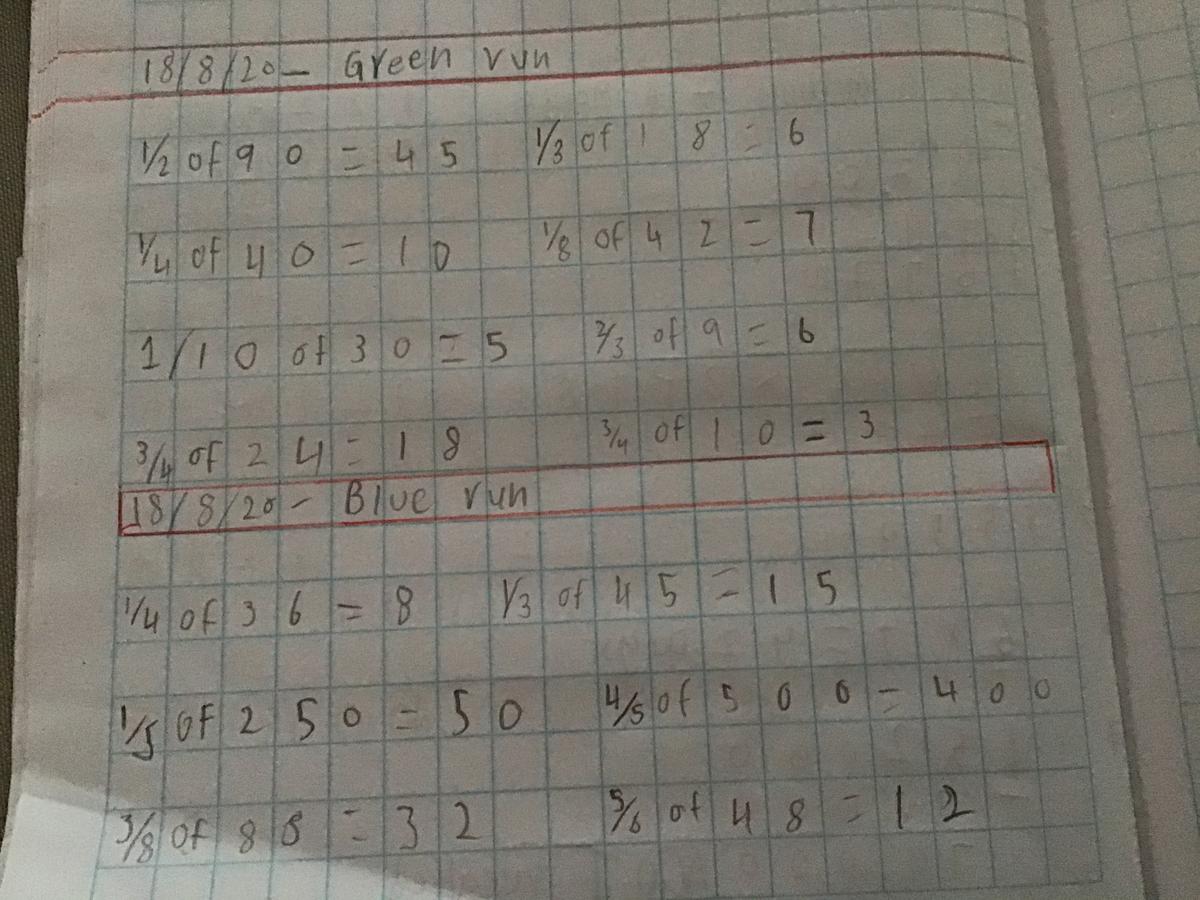 18/8/20- Green run
1/2 of 90 = 45 1/3 of 18 = 6
1/4 of 40 = 10 1/8 of 42 = 7
1/10 of 30 = 5 2/3 of 9 = 6
3/4 of 24 = 18 3/4 of 10 = 3
18/8/20- Blue run
1/4 of 36 = 8 1/3 of 45 = 15
1/5 of 250 = 50 4/5 of 500 = 400
3/8 of 88 = 32 5/6 of 48 = 12